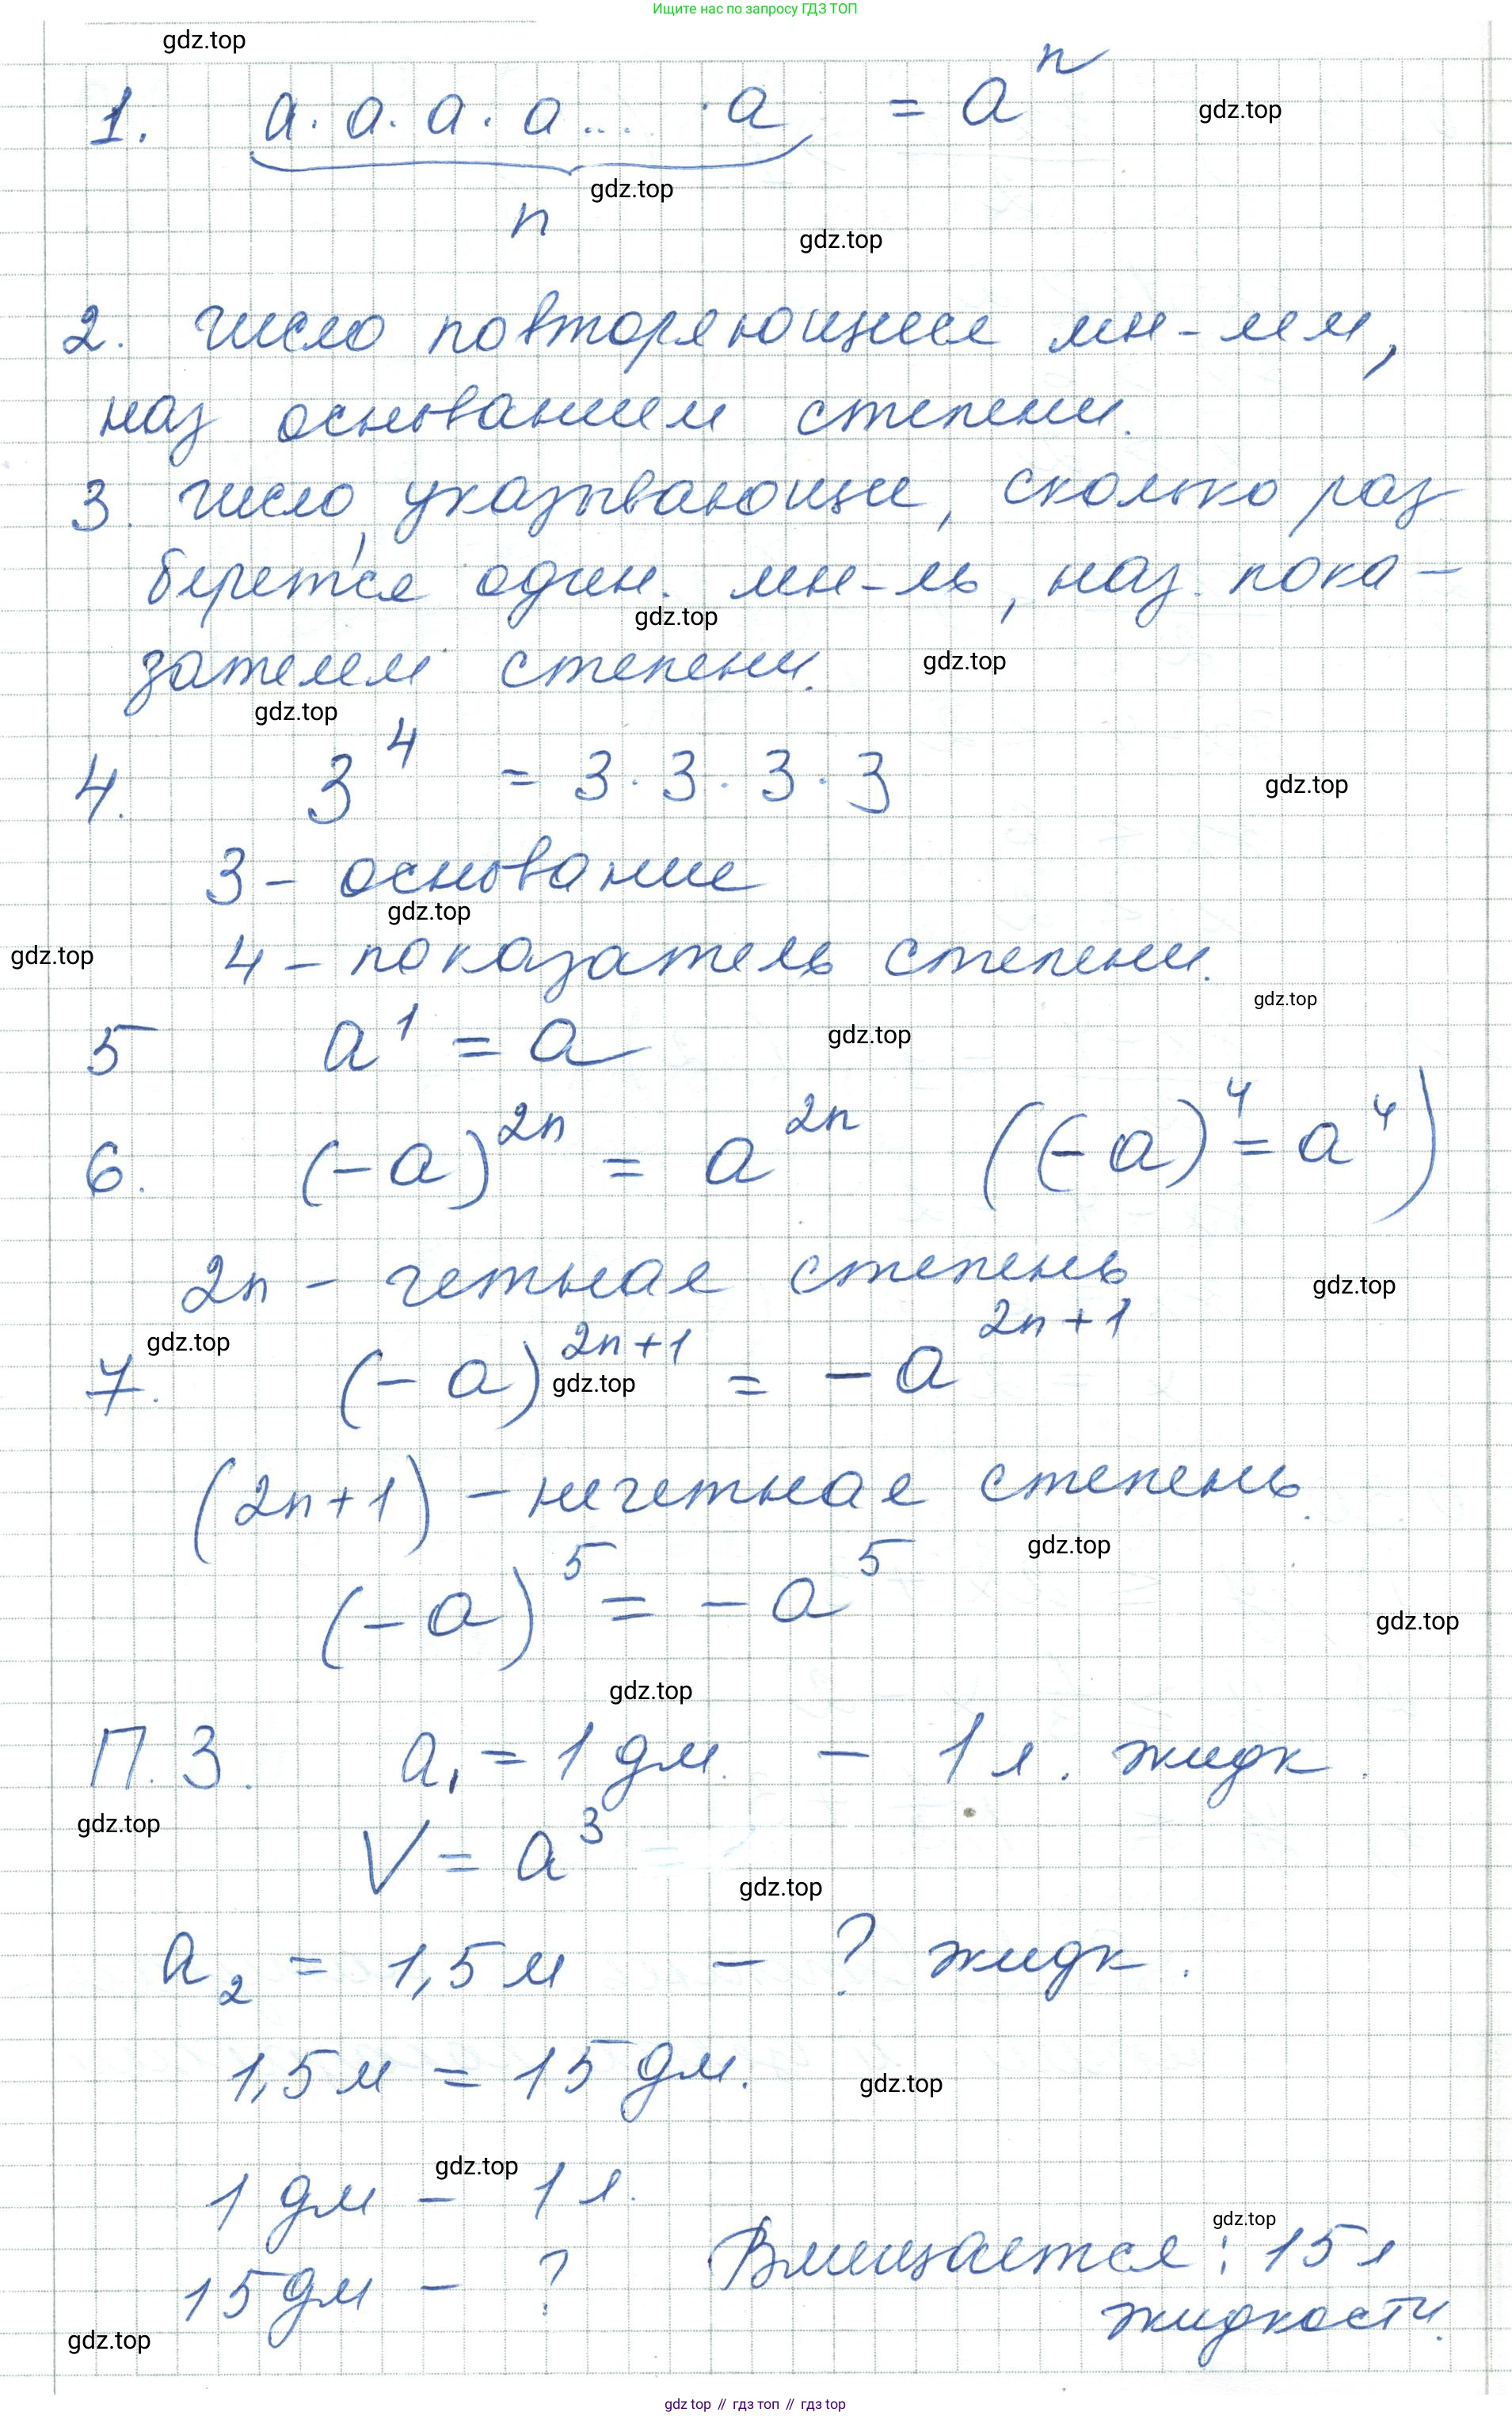 Ищите нас по запросу ГДЗ ТОП
gdz.top
1. a · a · a · a ... · a = aⁿ
gdz.top
gdz.top
n
gdz.top
2. число повторяющееся мн-лем,
наз основанием степени.
3. число, указывающее, сколько раз
берется один. мн-ль, наз. пока-
gdz.top
зателем степени.
gdz.top
gdz.top
4. 3⁴ = 3 · 3 · 3 · 3
gdz.top
3 - основание
gdz.top
gdz.top
4 - показатель степени.
gdz.top
5 a¹ = a
gdz.top
6. (-a)²ⁿ = a²ⁿ ((-a)⁴ = a⁴)
2n - четная степень
gdz.top
gdz.top
7. (-a)²ⁿ⁺¹ = -a²ⁿ⁺¹
gdz.top
(2n+1) - нечетная степень.
gdz.top
(-a)⁵ = -a⁵
gdz.top
gdz.top
П. 3. a₁ = 1 дм. - 1 л. жидк.
gdz.top
V = a³
gdz.top
a₂ = 1,5 м - ? жидк.
1,5 м = 15 дм.
gdz.top
gdz.top
1 дм - 1 л.
gdz.top
15 дм - ? Вмещается: 15 л
жидкости.
gdz.top
gdz top // гдз топ // гдз top